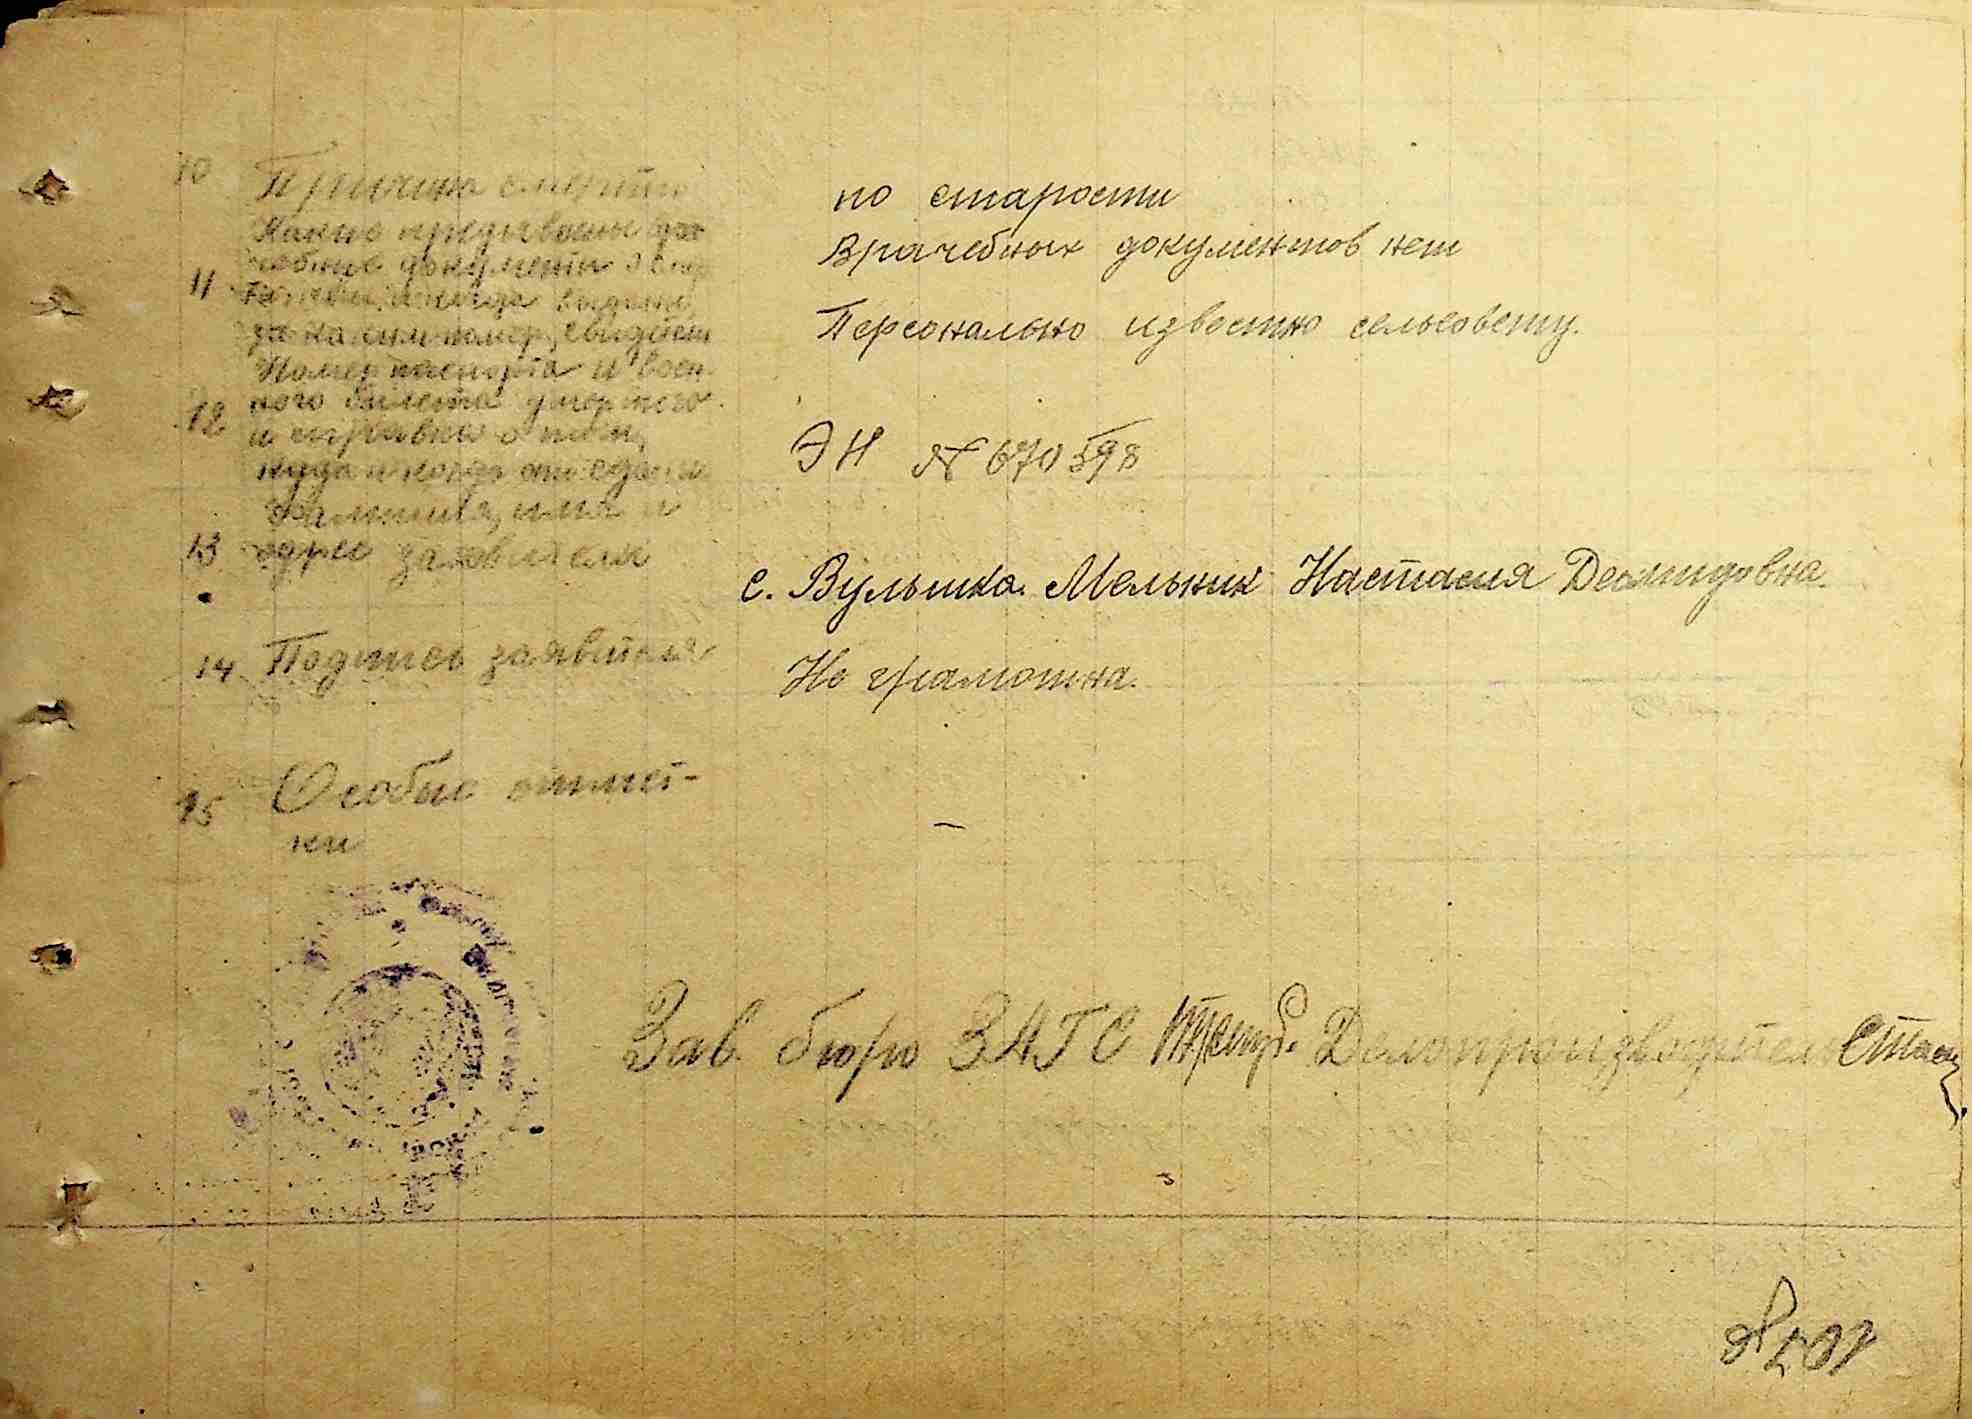 10 Причина смерти
по старости
Какие предъявлены вра
чебные документы о смер
Врачебных документов нет
11
и когда выданы
за каким номер, свидет
Персонально известно сельсовету.
Номер паспорта и воен
12 ного билета умершего
и справка о том,
ЭН № 670598
куда и когда они сданы
Фамилия, имя и
13 адрес заявителя
с. Вулька. Мельник Настасия Демидовна.
14 Подпись заявителя
Не грамотна.
15 Особые отмет-
ки
–
Зав. бюро ЗАГС Делопроизводитель